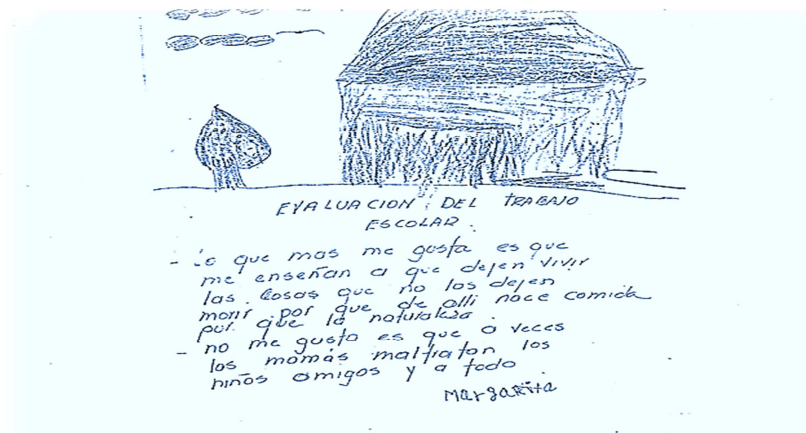 EVALUACION DEL TRABAJO
ESCOLAR.
- Lo que mas me gusta es que
me enseñan a que dejen vivir
las cosas que no las dejen
morir por que de alli nace comida
por que la naturaleza.
- no me gusta es que a veces
las mamás maltratan los
niños amigos y a todo
Margarita